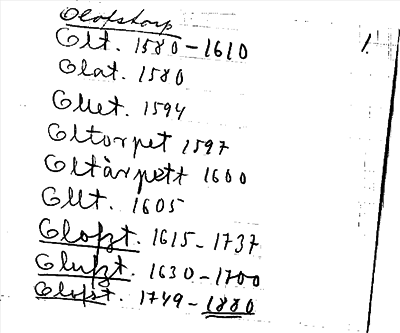 Olofstorp
Olt. 1580-1610 1.
Olat. 1580
Ollet. 1594
Oltorpet 1597
Oltårpett 1600
Ollt. 1605
Olofzt. 1615-1737
Olufzt. 1630-1700
Olofst. 1749-1880